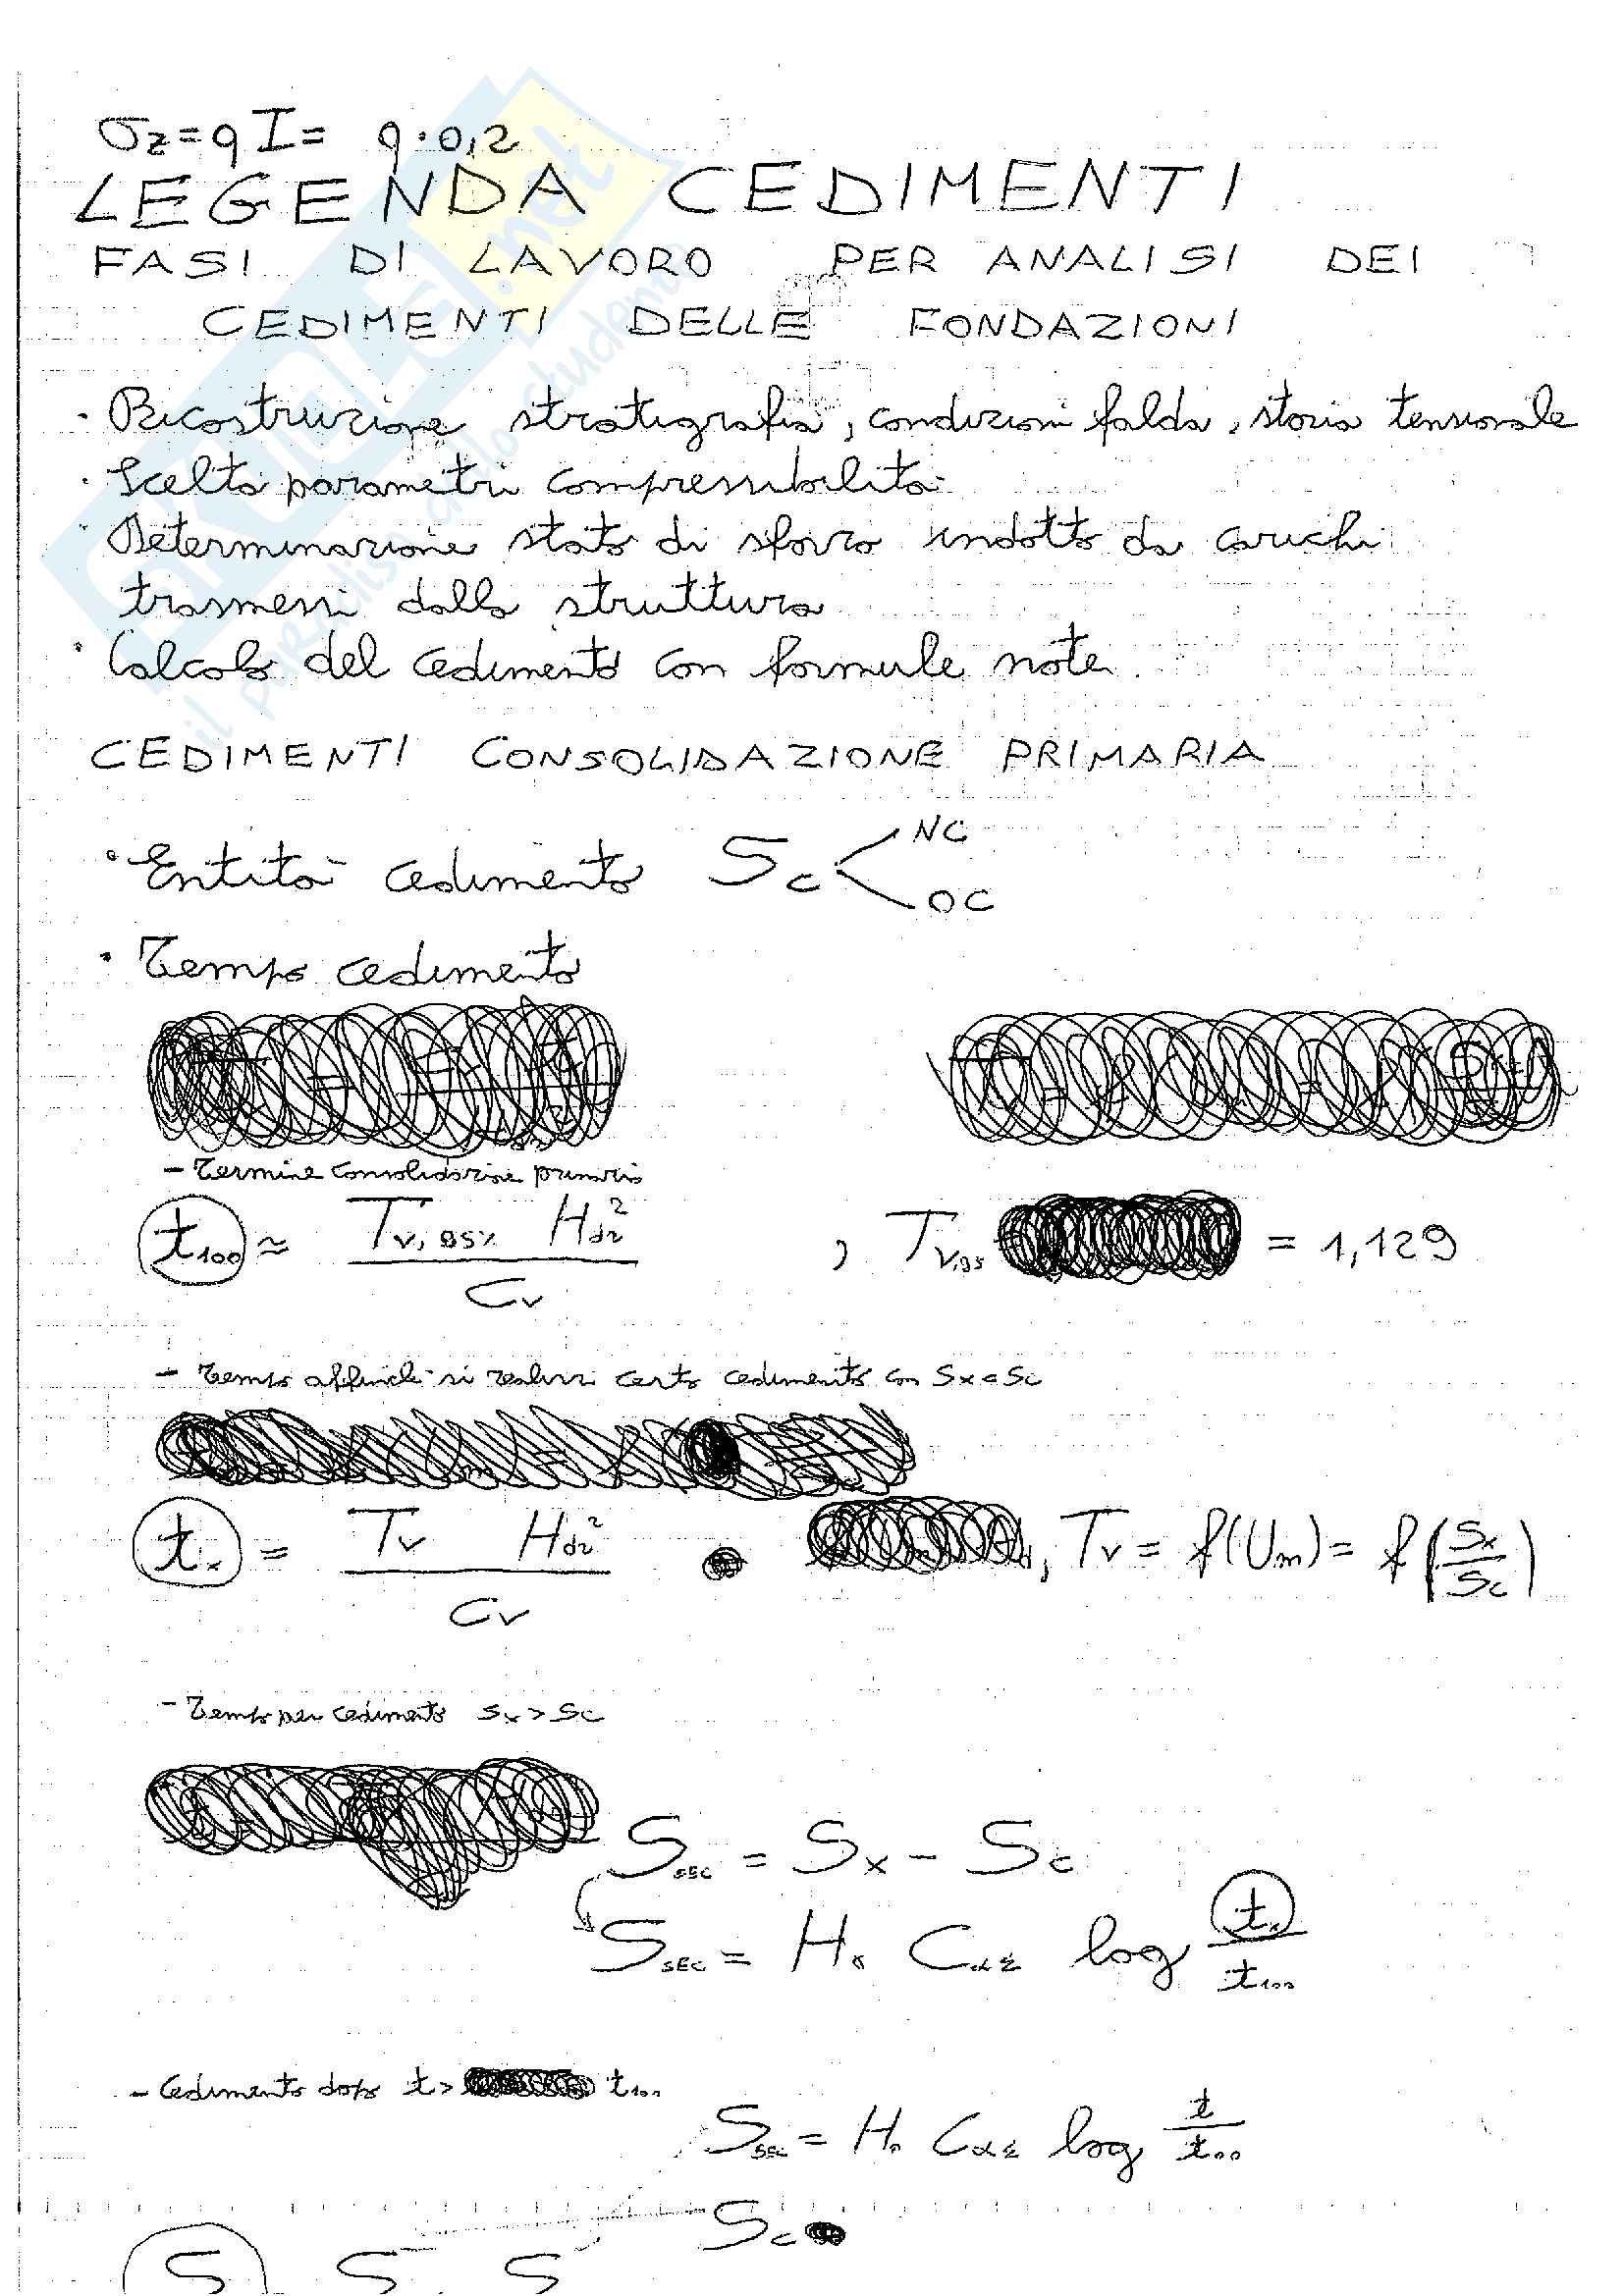 σz = q I = q · 0,2
LEGENDA CEDIMENTI
FASI DI LAVORO PER ANALISI DEI
CEDIMENTI DELLE FONDAZIONI
· Ricostruzione stratigrafia, condizioni falda, storia tensionale
· Scelta parametri compressibilità
· Determinazione stato di sforzo indotto da carichi
trasmessi dalla struttura
· Calcolo del cedimento con formule note
CEDIMENTI CONSOLIDAZIONE PRIMARIA
· Entità cedimento Sc < NC OC
· Tempo cedimento
- Termine consolidazione primaria
t100 ≈ Tv,95% Hdr² / Cv , Tv,95 = 1,129
- Tempo affinché si realizzi certo cedimento con Sx < Sc
tx = Tv Hdr² / Cv , Tv = f(Um) = f(Sx/Sc)
- Tempo per cedimento Sx > Sc
Ssec = Sx - Sc
SSEC = H0 Cαε log tx/t100
- Cedimento dopo t > t100
SSEC = H0 Cαε log t/t100
Sc
S S S